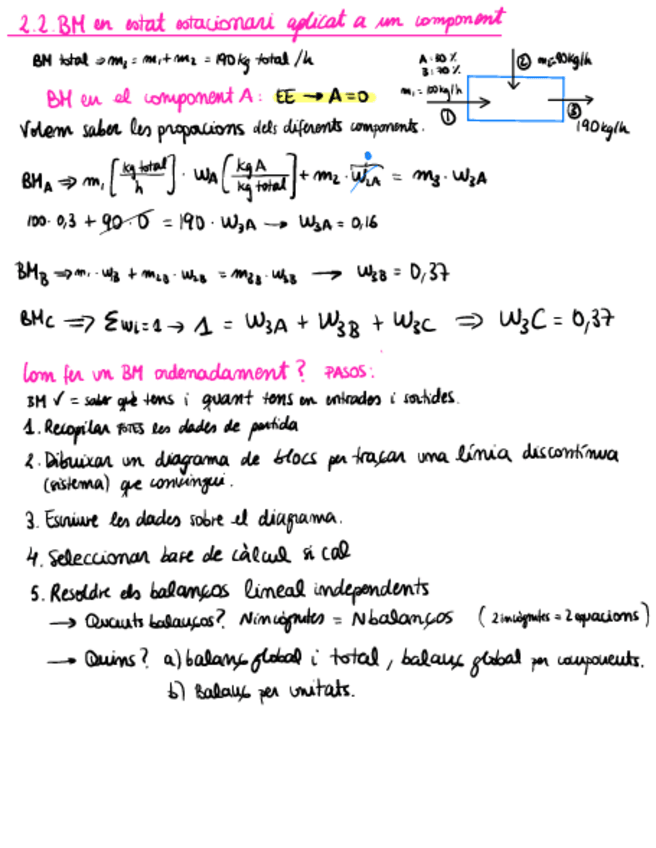 2.2. BM en estat estacionari aplicat a un component
BM total ⇒ m₃ = m₁ + m₂ = 190 kg total / h
A: 30 %
B: 70 %
② m₂=90kg/h
m₁ = 100kg/h
①
③
190 kg/h
BM en el component A: EE → A = 0
Volem saber les proporcions dels diferents components.
BM_A ⇒ m₁ [kg total / h] · W_A [kg A / kg total] + m₂ · W₂A = m₃ · W₃A
0
100 · 0,3 + 90 · 0 = 190 · W₃A → W₃A = 0,16
BM_B ⇒ m₁ · W_B + m₂B · W₂B = m₃B · W₃B → W₃B = 0,37
BMc ⇒ Σwi=1 → 1 = W₃A + W₃B + W₃C ⇒ W₃C = 0,37
Com fer un BM ordenadament? PASOS:
BM ✓ = saber què tens i quant tens en entrades i sortides.
1. Recopilar TOTES les dades de partida
2. Dibuixar un diagrama de blocs per traçar una línia discontínua
(sistema) que convingui.
3. Escriure les dades sobre el diagrama.
4. Seleccionar base de càlcul si cal
5. Resoldre els balanços lineal independents
→ Quants balanços? Nincògnites = Nbalanços (2 incògnites = 2 equacions)
→ Quins? a) balanç global i total, balanç global per components.
b) Balanç per unitats.